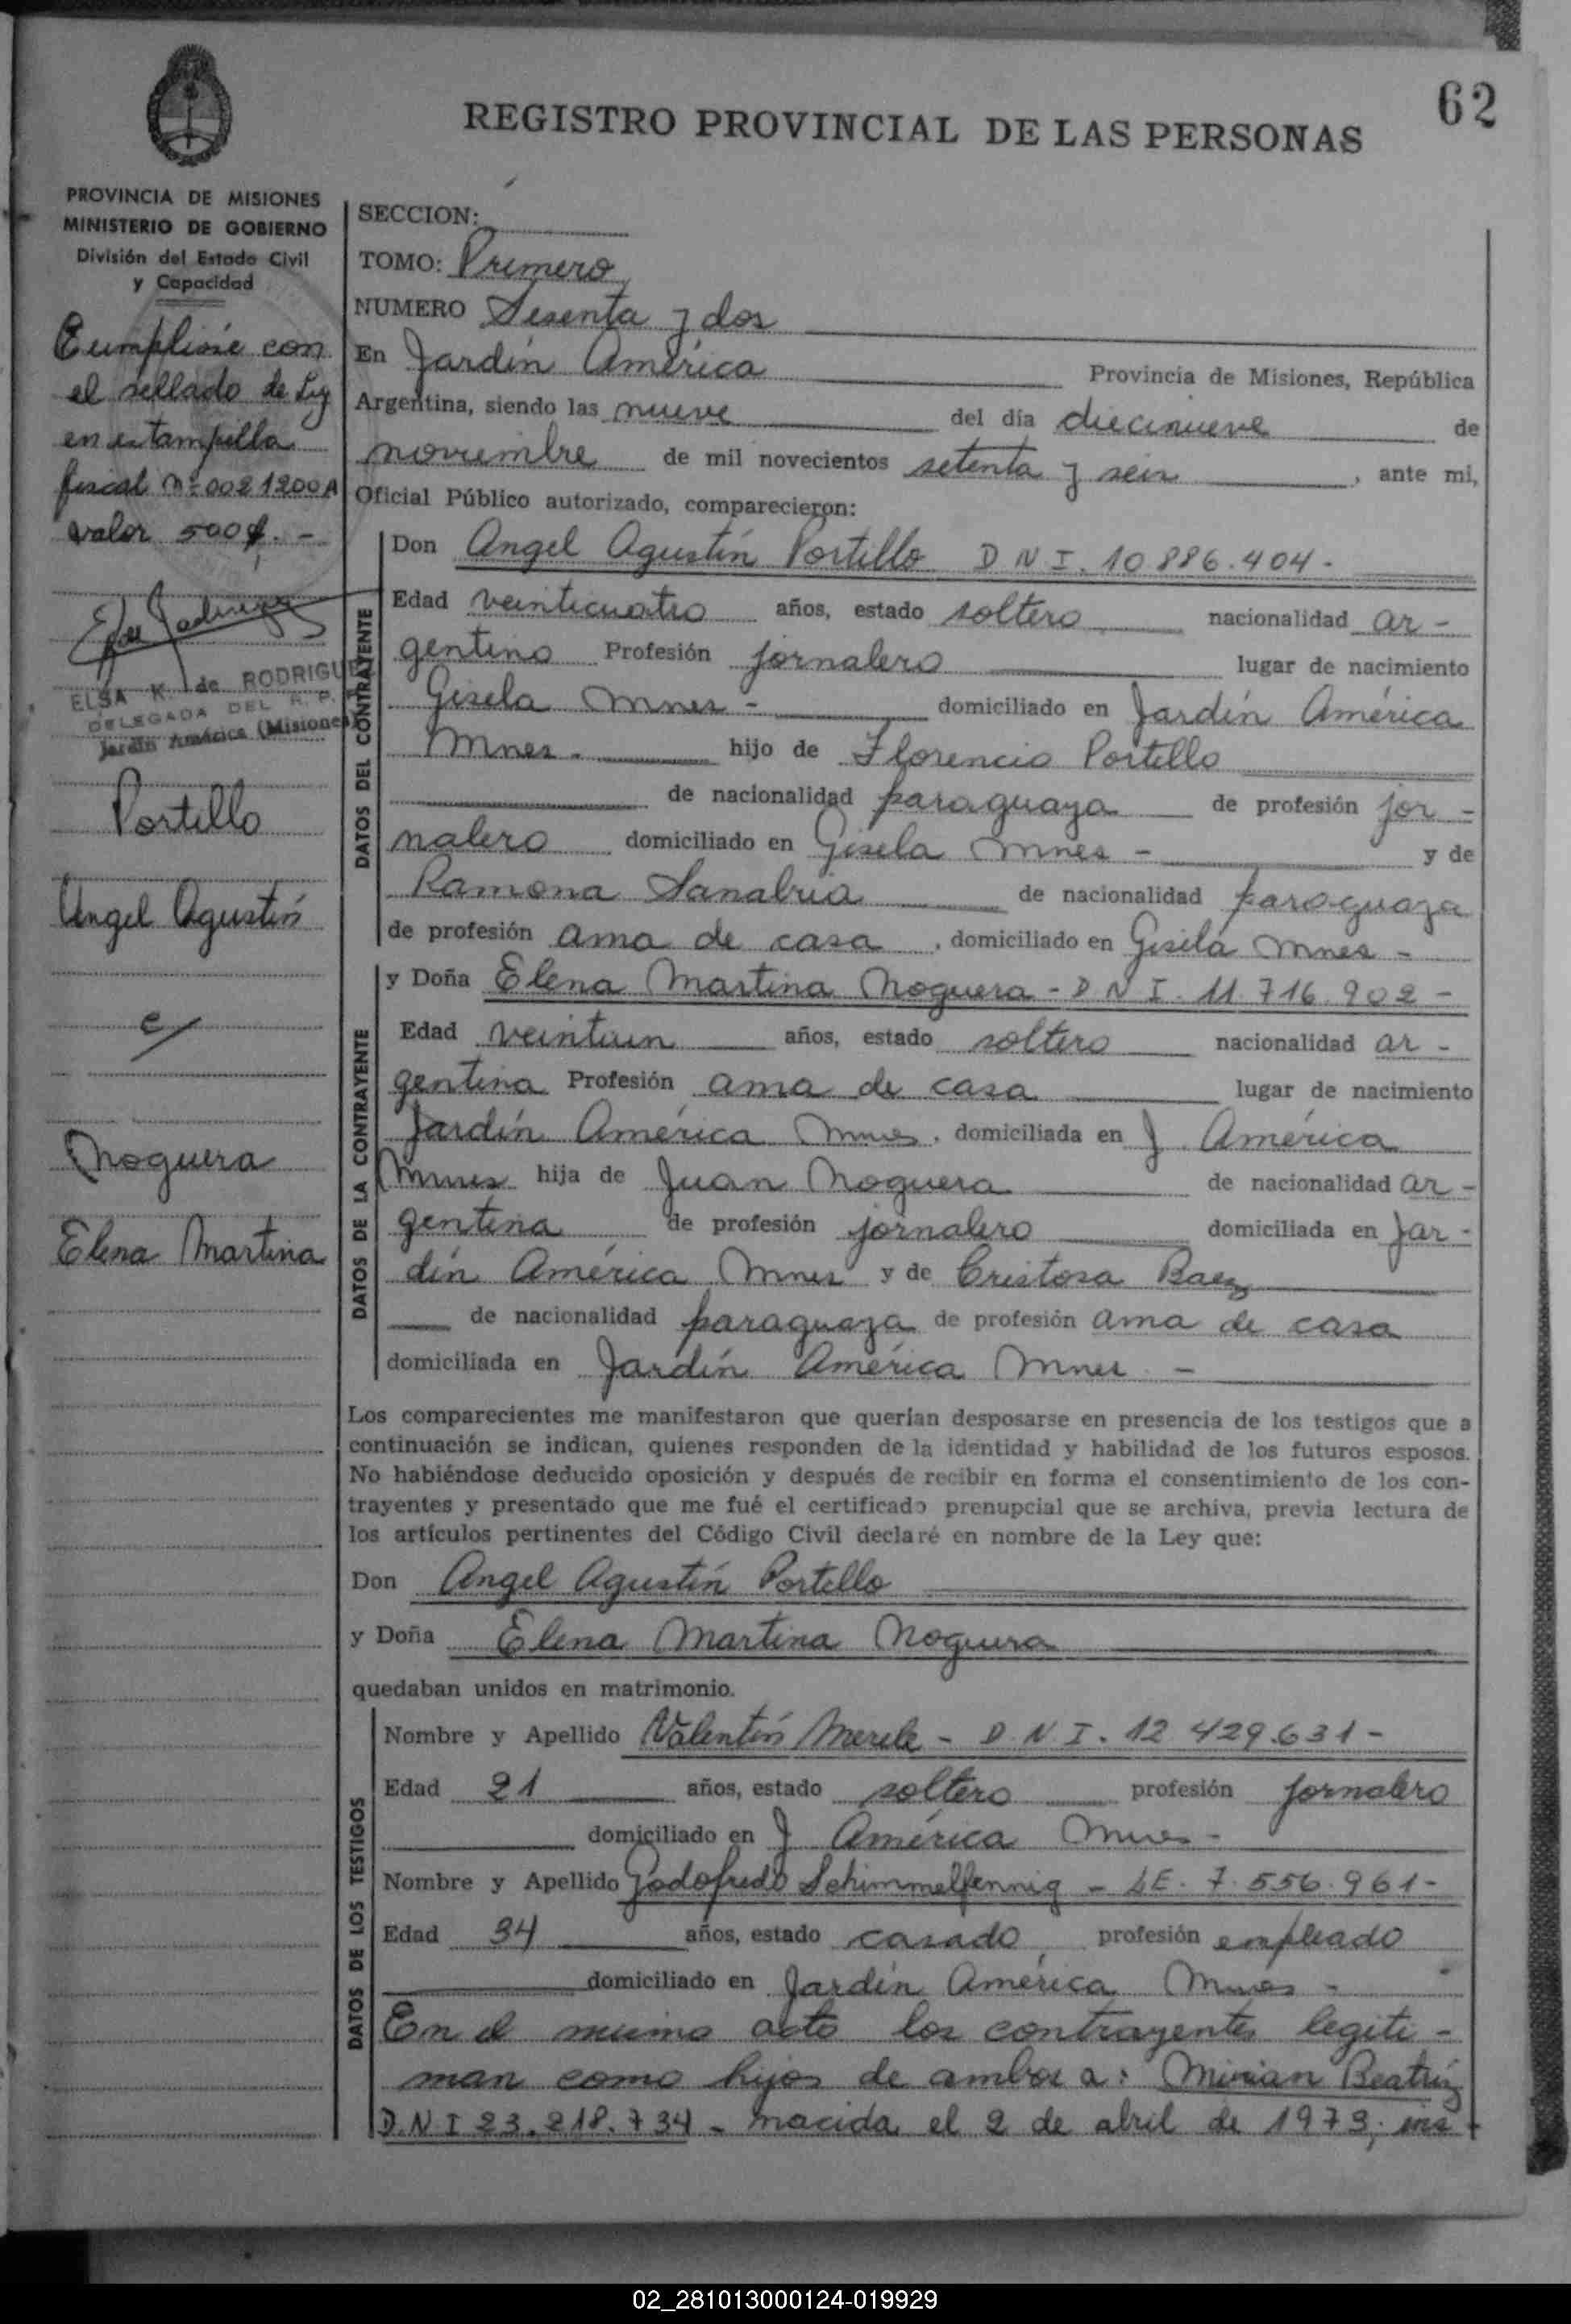 62
REGISTRO PROVINCIAL DE LAS PERSONAS
PROVINCIA DE MISIONES
MINISTERIO DE GOBIERNO
División del Estado Civil
y Capacidad
Cumplióse con
el sellado de Ley
en estampilla
fiscal nº 0021200A
valor 500$.-
ELSA K. de RODRIGUEZ
DELEGADA DEL R. P.
Jardín América (Misiones)
Portillo
Angel Agustín
c/
Noguera
Elena Martina
SECCION:
TOMO: Primero
NUMERO Sesenta y dos
En Jardín América Provincia de Misiones, República
Argentina, siendo las nueve del día diecinueve de
noviembre de mil novecientos setenta y seis, ante mi,
Oficial Público autorizado, comparecieron:
DATOS DEL CONTRAYENTE
Don Angel Agustín Portillo D N I. 10.886.404.-
Edad veinticuatro años, estado soltero nacionalidad ar-
gentino Profesión jornalero lugar de nacimiento
Gisela Mnes - domiciliado en Jardín América
Mnes. hijo de Florencio Portillo
de nacionalidad paraguaya de profesión jor-
nalero domiciliado en Gisela Mnes - y de
Ramona Sanabria de nacionalidad paraguaya
de profesión ama de casa, domiciliado en Gisela Mnes -
DATOS DE LA CONTRAYENTE
y Doña Elena Martina Noguera - D N I. 11.716.902 -
Edad veintiun años, estado soltera nacionalidad ar-
gentina Profesión ama de casa lugar de nacimiento
Jardín América Mnes. domiciliada en J. América
Mnes hija de Juan Noguera de nacionalidad ar-
gentina de profesión jornalero domiciliada en Jar-
dín América Mnes y de Cristosa Baez
de nacionalidad paraguaya de profesión ama de casa
domiciliada en Jardín América Mnes -
Los comparecientes me manifestaron que querían desposarse en presencia de los testigos que a
continuación se indican, quienes responden de la identidad y habilidad de los futuros esposos.
No habiéndose deducido oposición y después de recibir en forma el consentimiento de los con-
trayentes y presentado que me fué el certificado prenupcial que se archiva, previa lectura de
los artículos pertinentes del Código Civil declaré en nombre de la Ley que:
Don Angel Agustín Portillo
y Doña Elena Martina Noguera
quedaban unidos en matrimonio.
DATOS DE LOS TESTIGOS
Nombre y Apellido Valentín Merele - D. N. I. 12.429.631 -
Edad 21 años, estado soltero profesión jornalero
domiciliado en J América Mnes -
Nombre y Apellido Godofredo Schimmelfennig - LE. 7.556.961 -
Edad 34 años, estado casado, profesión empleado
domiciliado en Jardín América Mnes -
En el mismo acto los contrayentes legiti-
man como hijos de ambos a: Mirian Beatriz
D.N.I 23.218.734 - nacida el 2 de abril de 1973; ins-
02_281013000124-019929